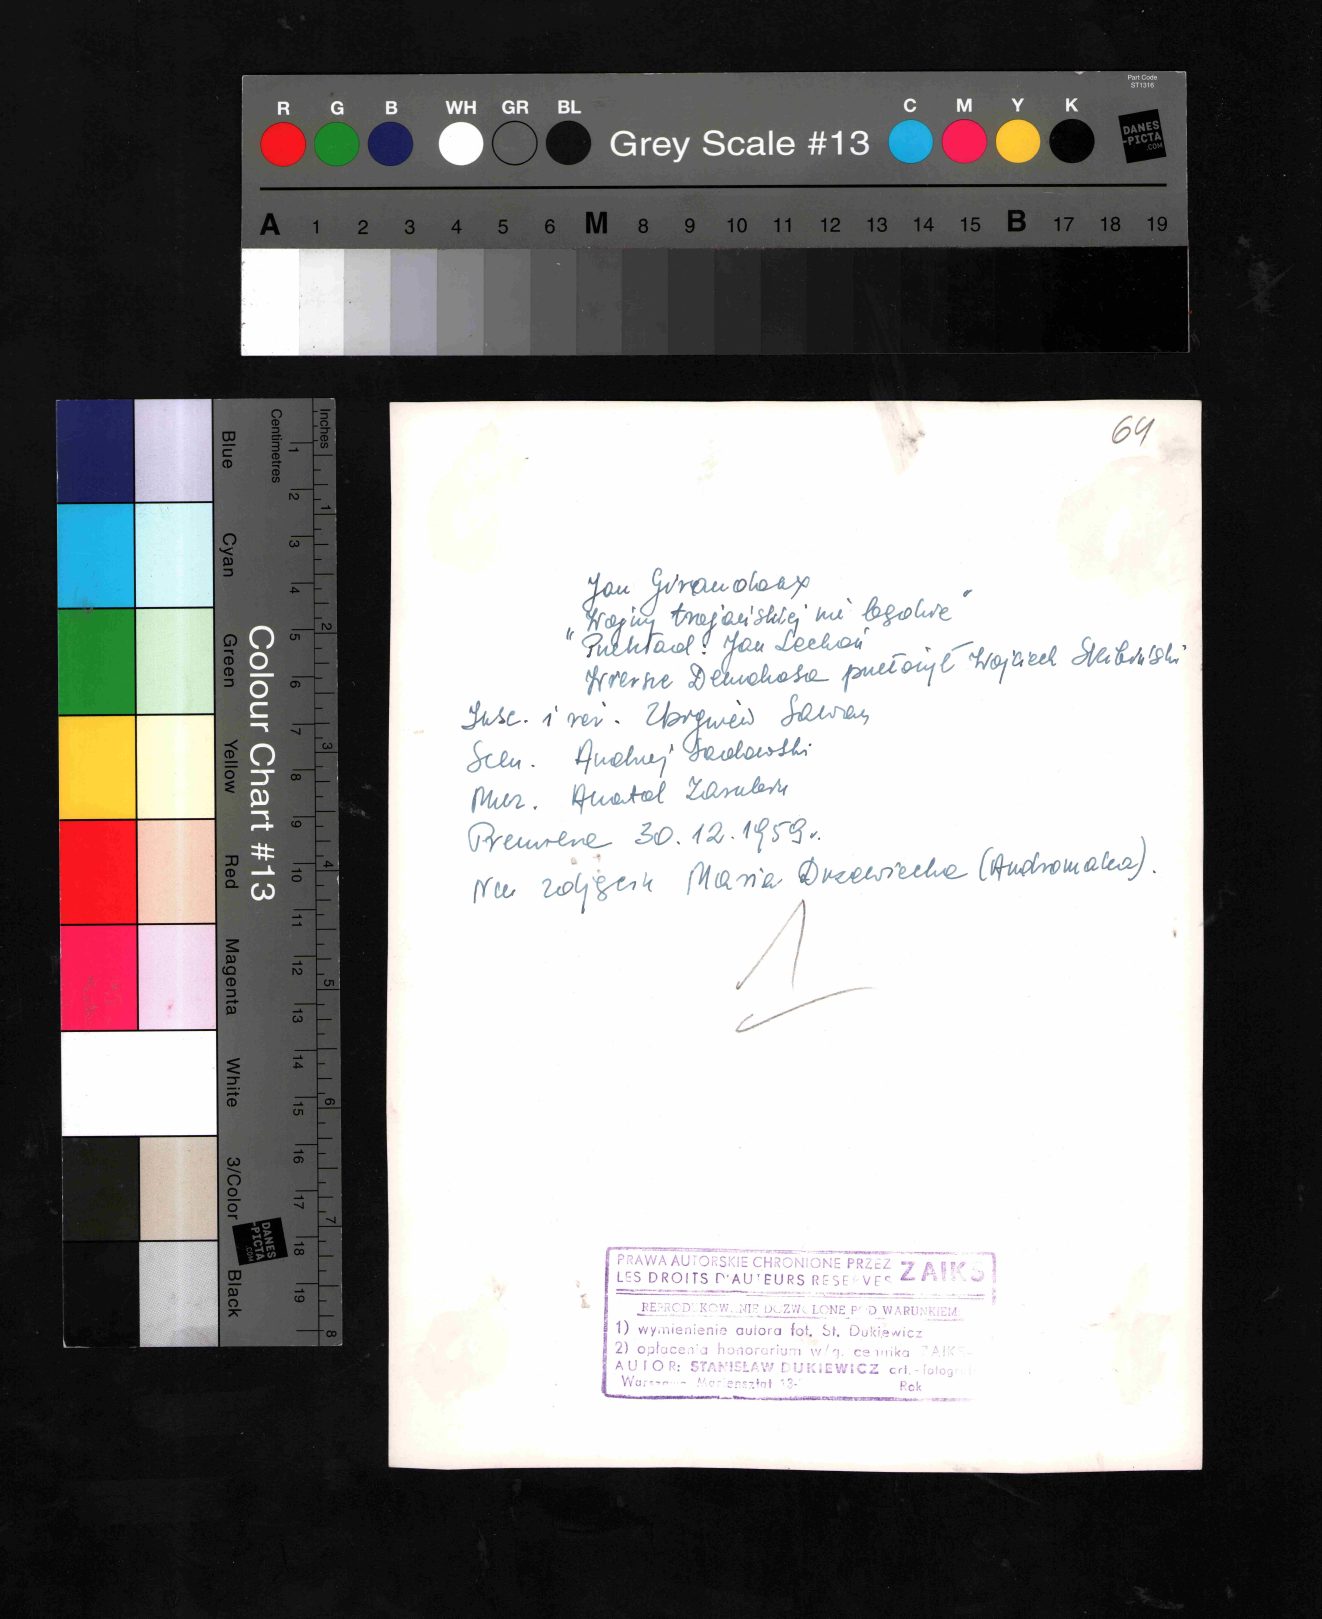 Part Code
ST1316
R G B WH GR BL Grey Scale #13 C M Y K
DANES
-PICTA
.COM
A 1 2 3 4 5 6 M 8 9 10 11 12 13 14 15 B 17 18 19
Colour Chart #13
Blue Cyan Green Yellow Red Magenta White 3/Color Black
Centimetres
1 2 3 4 5 6 7 8 9 10 11 12 13 14 15 16 17 18 19
Inches
1 2 3 4 5 6 7 8
DANES
-PICTA
.COM
64
Jan Giraudoux
"Wojny trojańskiej nie będzie"
Przekład: Jan Lechoń
Wiersze Demokosa przełożył Wojciech
Insc. i reż. Zbigniew Sawan
Scen. Andrzej Sadowski
Muz. Anatol Zarubin
Premiera 30.12.1959r.
Na zdjęciu Maria Drzewiecka (Andromaka).
1
PRAWA AUTORSKIE CHRONIONE PRZEZ ZAIKS
LES DROITS D'AUTEURS RESERVES
REPRODUKOWANIE DOZWOLONE POD WARUNKIEM
1) wymienienie autora fot. St. Dukiewicz
2) opłacenia honorarium w/g. cennika ZAIKS
AUTOR: STANISŁAW DUKIEWICZ art.-fotograf
Warszawa Mariensztat 13- Rok